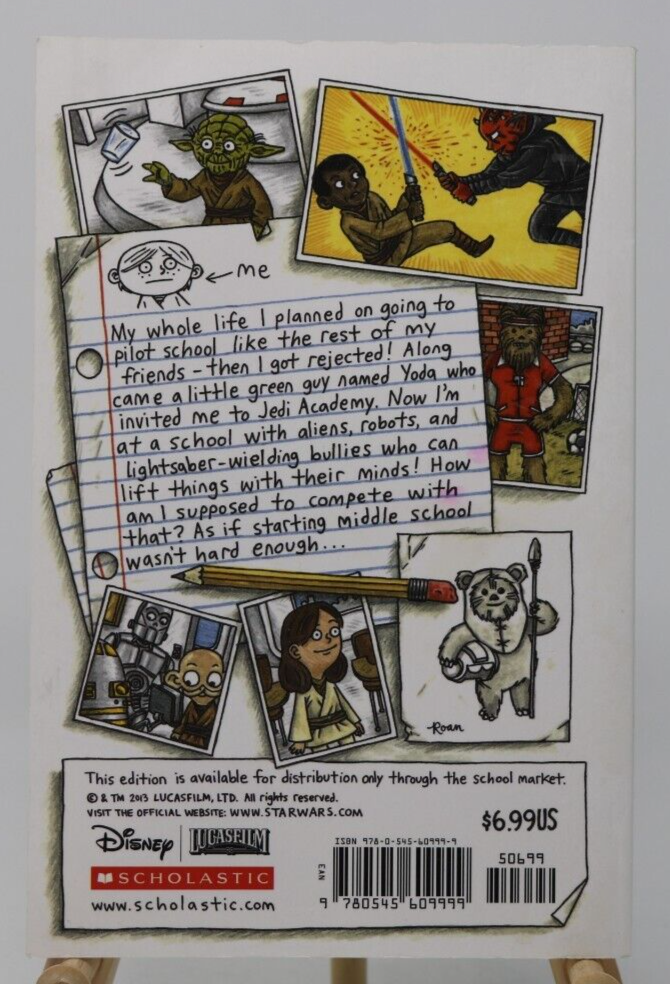 me
My whole life I planned on going to
pilot school like the rest of my
friends - then I got rejected! Along
came a little green guy named Yoda who
invited me to Jedi Academy. Now I'm
at a school with aliens, robots, and
lightsaber-wielding bullies who can
lift things with their minds! How
am I supposed to compete with
that? As if starting middle school
wasn't hard enough...
Roan
This edition is available for distribution only through the school market.
© & TM 2013 LUCASFILM, LTD. All rights reserved.
VISIT THE OFFICIAL WEBSITE: WWW.STARWARS.COM
$6.99US
Disney | LUCASFILM
SCHOLASTIC
www.scholastic.com
ISBN 978-0-545-60999-9
50699
EAN
9 780545 609999